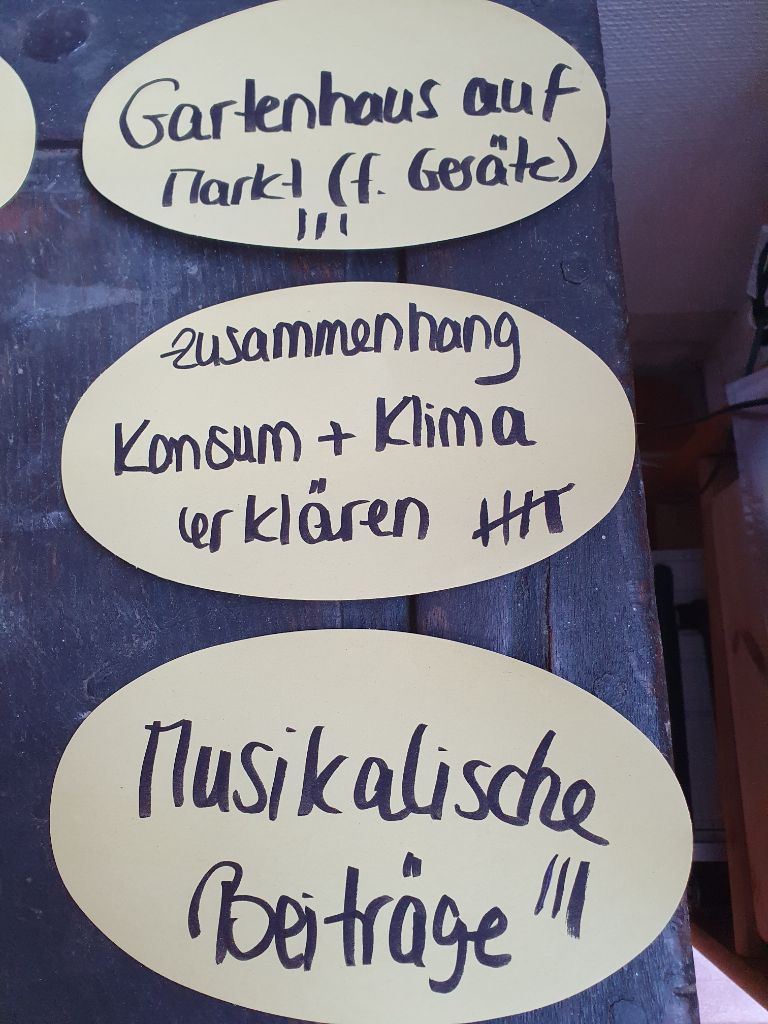 Gartenhaus auf
Markt (f. Geräte)
|||
Zusammenhang
Konsum + Klima
erklären 卌
Musikalische
Beiträge |||